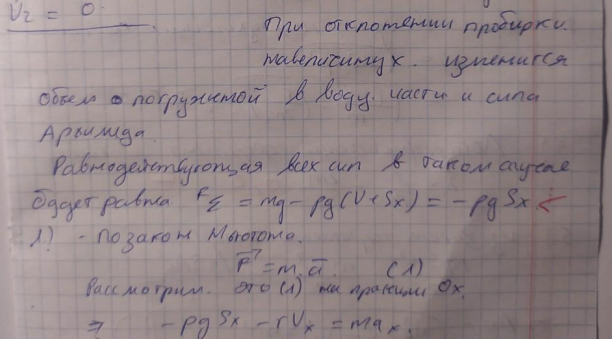 V₂ = 0.
При отклотении пробирки.
на величину x. изменится
объем погружитой в воду. части и сила
Архимеда.
Равнодействующая всех сил в таком случае
будет равна F_Σ = mg - ρg(V+Sx) = -ρgSx
1) - по закон Ньютона.
F⃗ = m a⃗. (1)
Рассмотрим. это (1) на проекции Ox.
⇒ -ρgSx - rVₓ = maₓ.